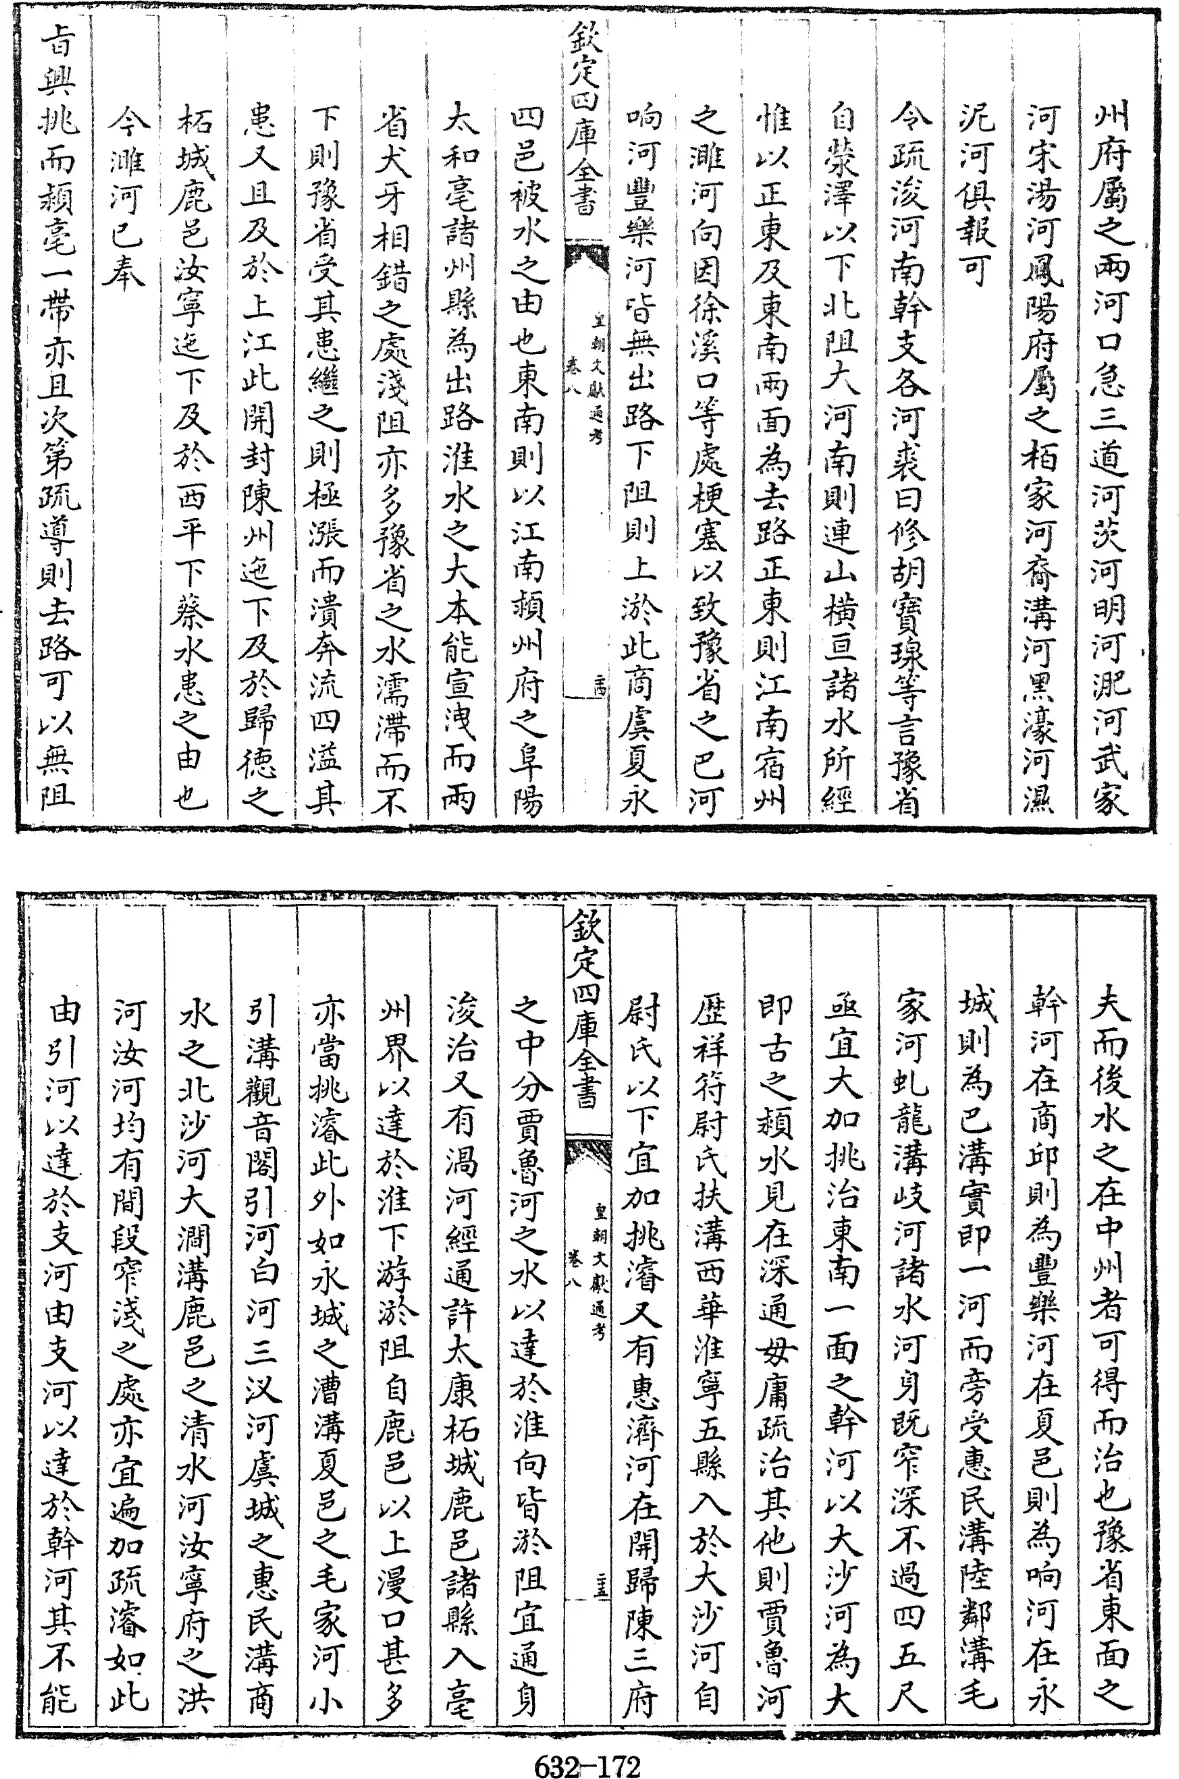 州府屬之兩河口急三道河茨河明河淝河武家
河宋湯河鳳陽府屬之栢家河裔溝河黑濠河濕
泥河俱報可
令疏浚河南幹支各河裘曰修胡寶瑔等言豫省
自滎澤以下北阻大河南則連山橫亘諸水所經
惟以正東及東南兩面為去路正東則江南宿州
之濉河向因徐溪口等處梗塞以致豫省之巴河
响河豐樂河皆無出路下阻則上淤此商虞夏永
欽定四庫全書
皇朝文獻通考
卷八
四邑被水之由也東南則以江南潁州府之阜陽
太和亳諸州縣為出路淮水之大本能宣洩而兩
省犬牙相錯之處淺阻亦多豫省之水濡滯而不
下則豫省受其患繼之則極漲而潰奔流四溢其
患又且及於上江此開封陳州迤下及於歸德之
柘城鹿邑汝寧迤下及於西平下蔡水患之由也
今濉河已奉
旨興挑而潁亳一帶亦且次第疏導則去路可以無阻
夫而後水之在中州者可得而治也豫省東面之
幹河在商邱則為豐樂河在夏邑則為响河在永
城則為巴溝實即一河而旁受惠民溝陸鄰溝毛
家河虬龍溝岐河諸水河身既窄深不過四五尺
亟宜大加挑治東南一面之幹河以大沙河為大
即古之潁水見在深通毋庸疏治其他則賈魯河
歷祥符尉氏扶溝西華淮寧五縣入於大沙河自
尉氏以下宜加挑濬又有惠濟河在開歸陳三府
欽定四庫全書
皇朝文獻通考
卷八
之中分賈魯河之水以達於淮向皆淤阻宜通身
浚治又有渦河經通許太康柘城鹿邑諸縣入亳
州界以達於淮下游淤阻自鹿邑以上漫口甚多
亦當挑濬此外如永城之漕溝夏邑之毛家河小
引溝觀音閣引河白河三汊河虞城之惠民溝商
水之北沙河大澗溝鹿邑之清水河汝寧府之洪
河汝河均有間段窄淺之處亦宜遍加疏濬如此
由引河以達於支河由支河以達於幹河其不能
632-172